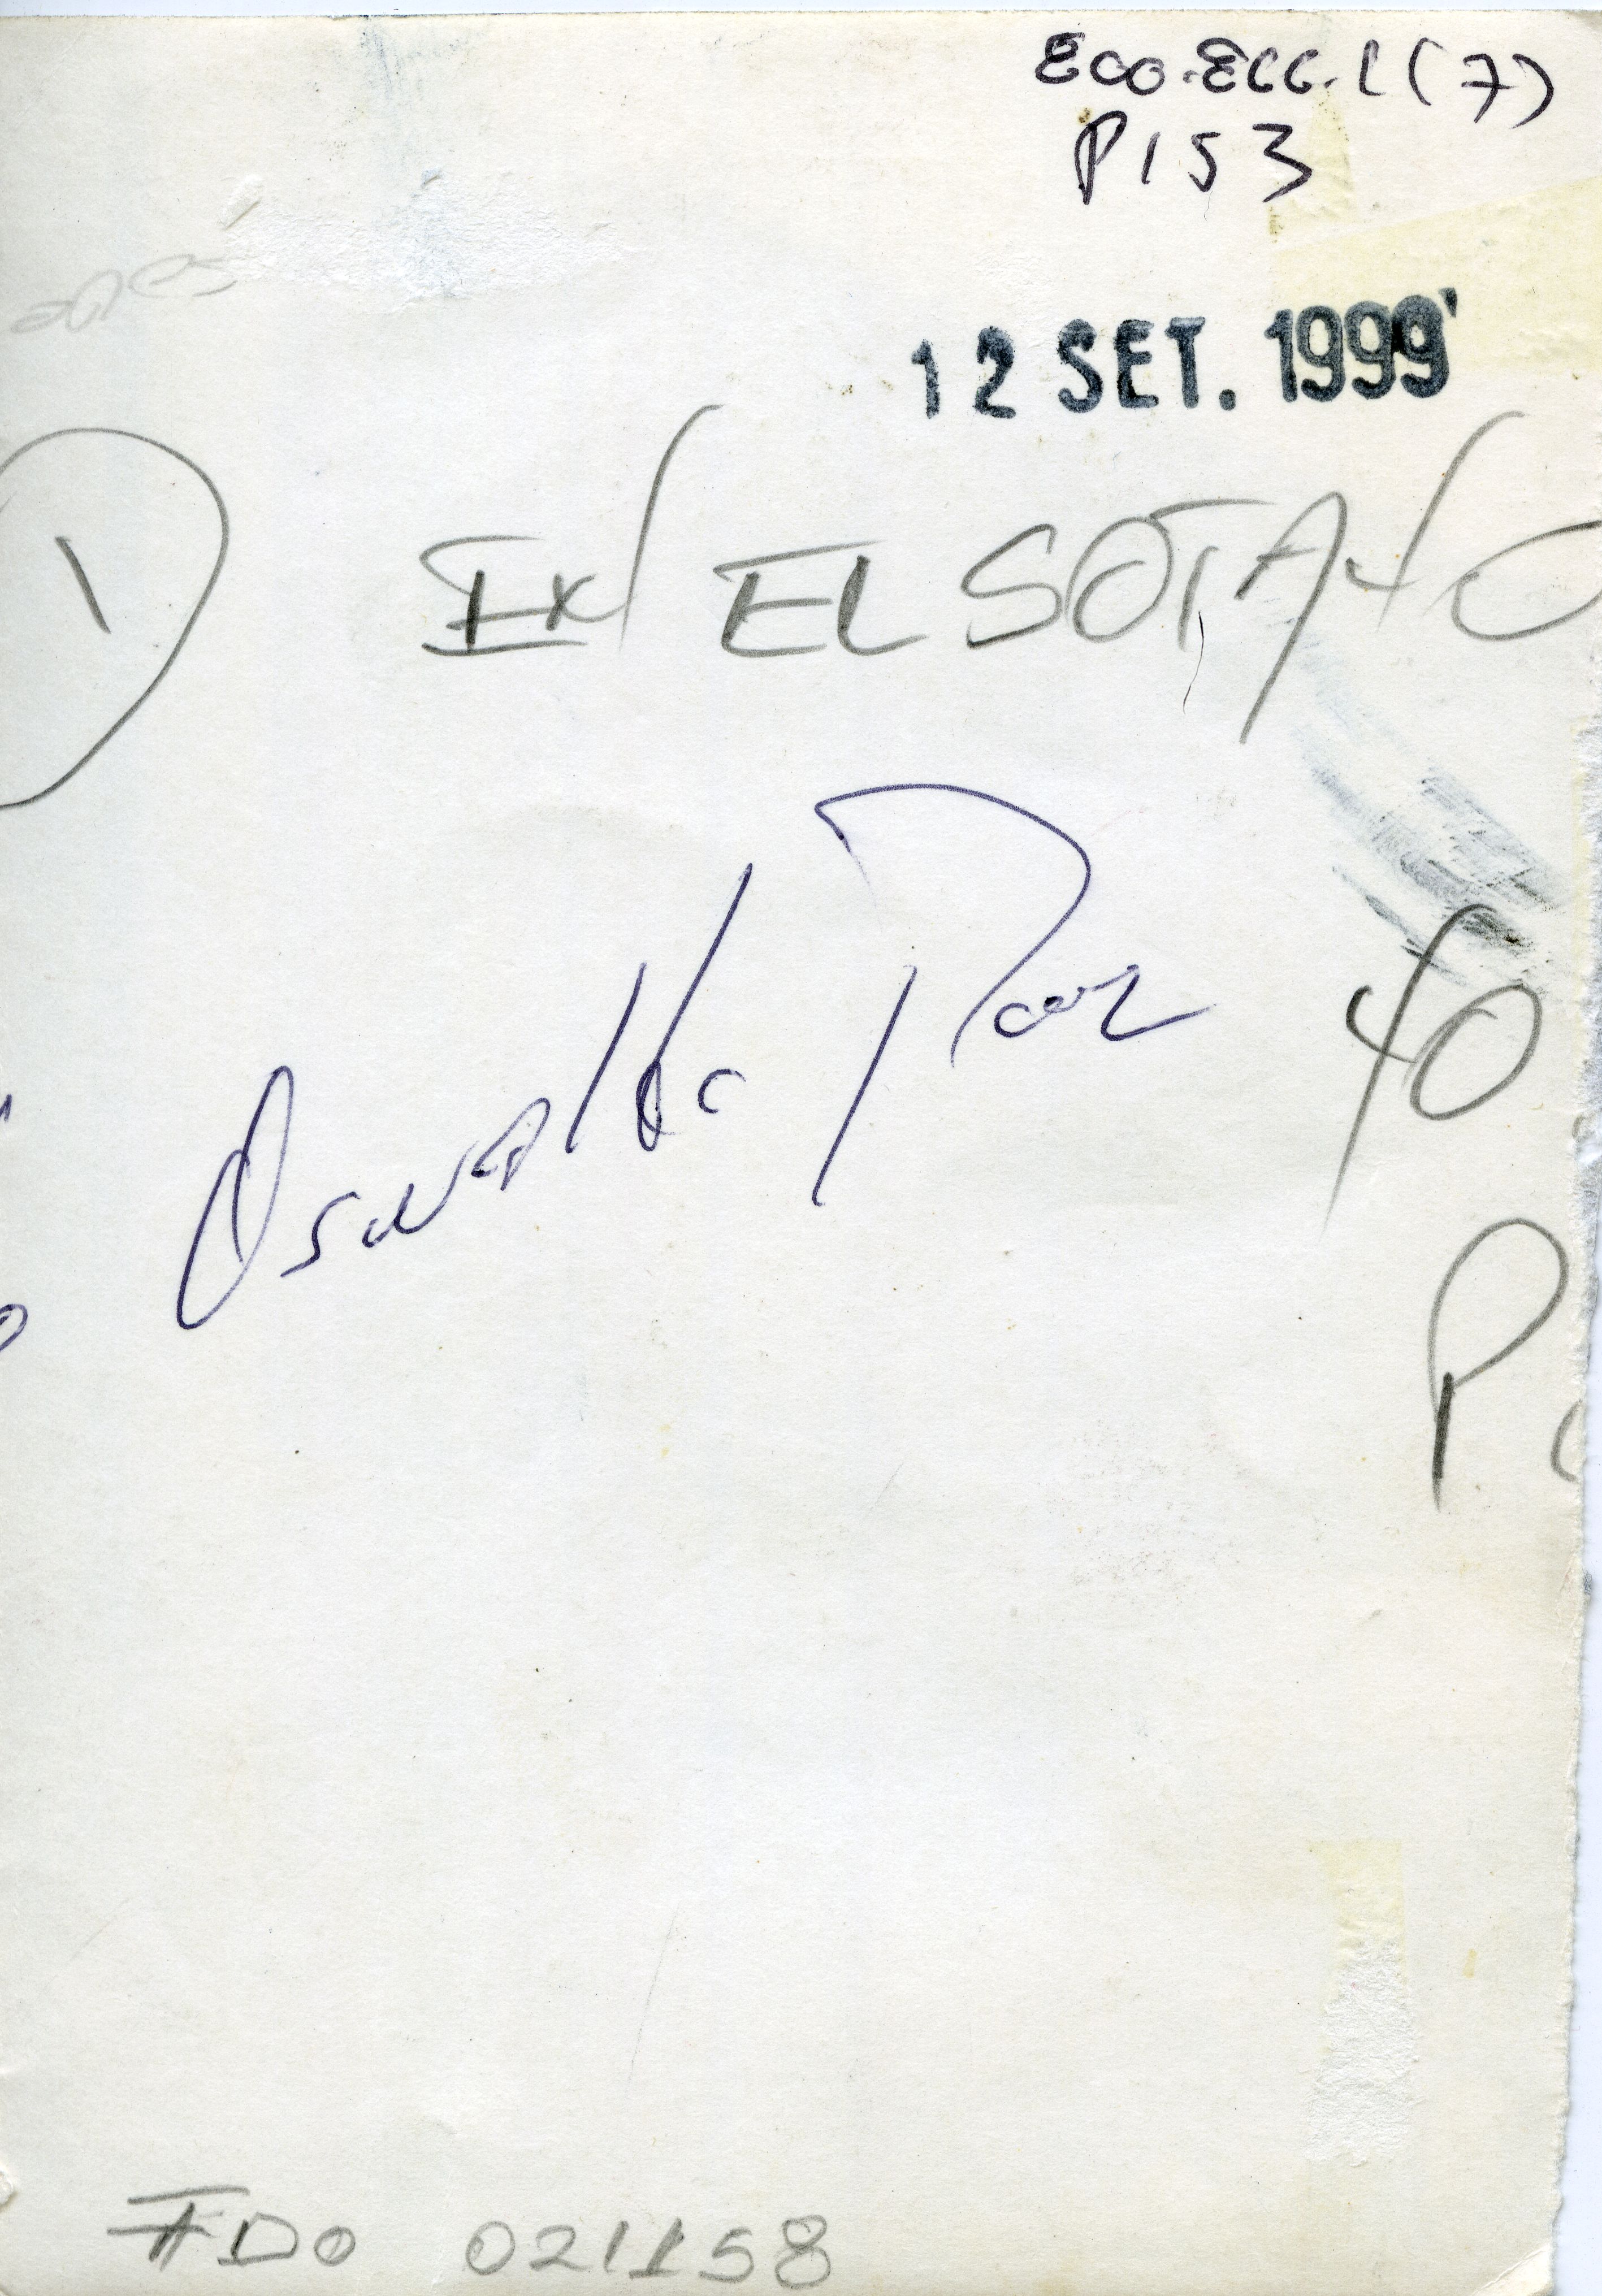 ECO-ECC.L(7)
P153
12 SET. 1999
1 EN EL SOTANO
Osvaldo Paz
40
P
FDO 021158